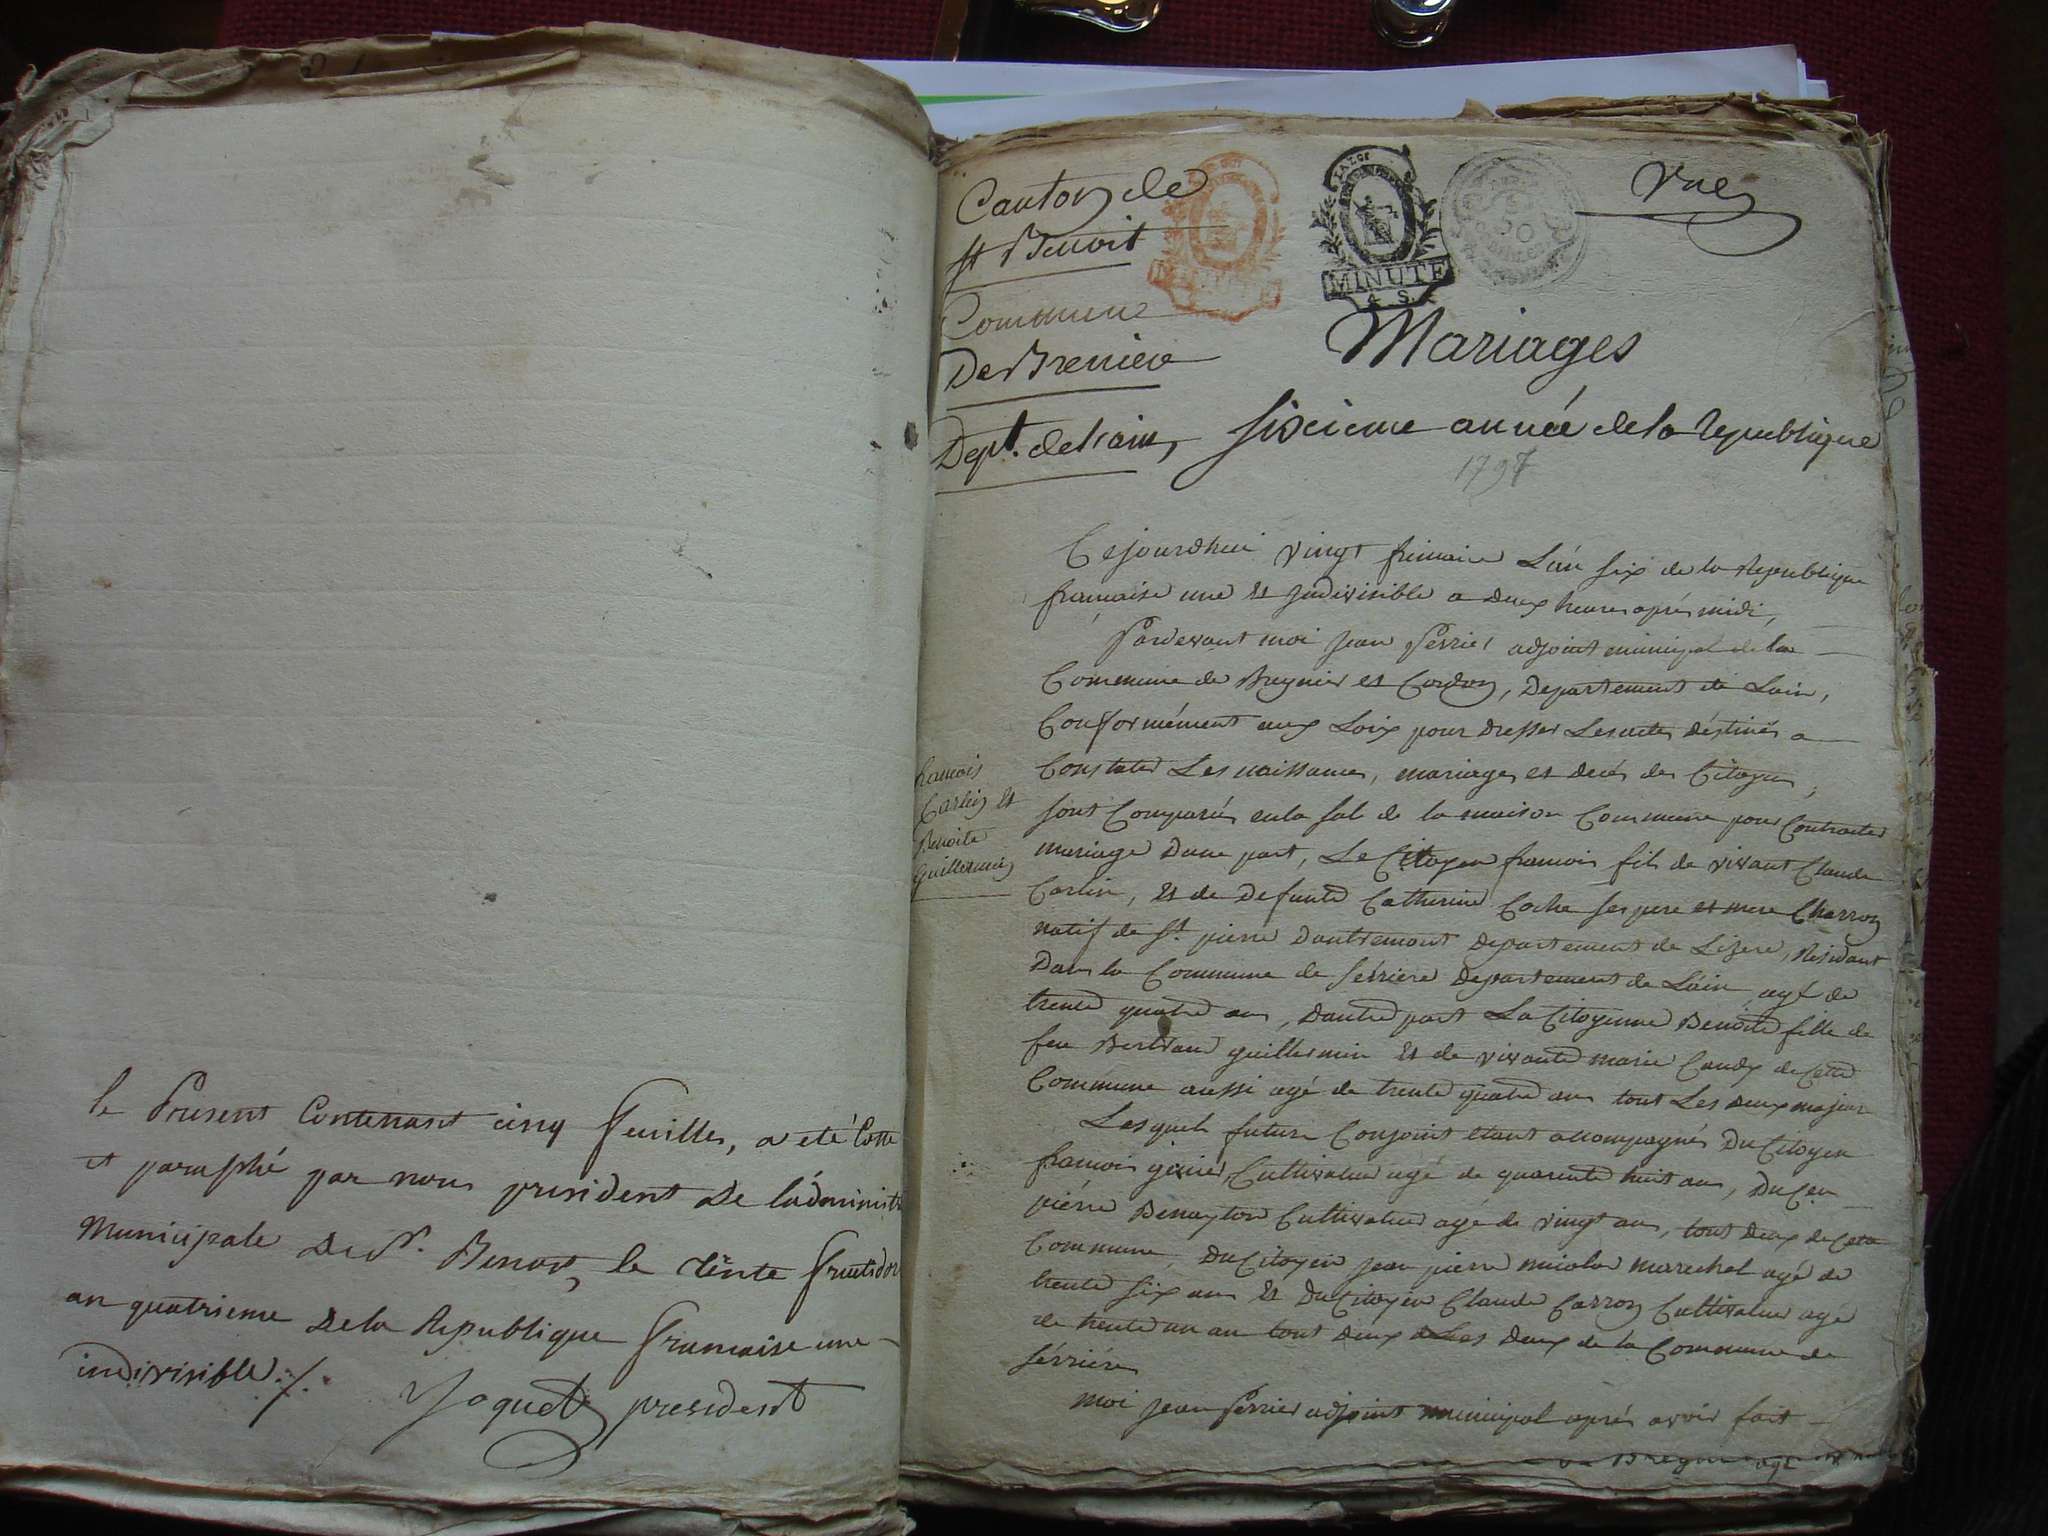 le Present Contenant cinq feuilles, a eté Cotte
et paraphé par nous president De ladminist
Municipale De St. Benoit, le trente fructidor
an quatrieme Dela Republique francaise une
indivisible ./.
Jaquet president
Canton de
St Benoit
Commune
De
Dept. de lain,
LA LOI
MINUTE
4. S.
50
une
Mariages
Sixieme année de la republique
1797
Cejourdhui vingt frimaire L'an six de la Republique
francaise une et Indivisible a deux heures aprés midi,
Pardevant moi Jean Perrier adjoint municipal de la
Commune de Bregnier et Cordon, Departement de Lain,
Conformément aux Loix pour dresser Les actes déstinés a
Constater Les naissances, mariages et decés des Citoyens,
sont Comparés en la sal de la maison Commune pour Contracter
mariage Dune part, Le Citoyen francois fils de vivant Claude
Carlin, et de Defunte Catherine Coche ses pere et mere Charron
natif de St. pierre Dentremont Departement de Lizere, Résidant
Dans la Commune de Sérriere Departement de Láin, agé de
trente quatre ans, Dautre part La Citoyenne Benoite fille de
feu Bertrand guillermin et de vivante marie Caudy de Cette
Commune aussi agé de trente quatre ans tout Les deux majeur
Lesquels futurs Conjoint etant accompagnés Du Citoyen
francois Cultivateur agé de quarente huit ans, Du Cen
piérre Benayton Cultivateur agé de vingt ans, tout deux de Cete
Commune, Du Citoyen jean pierre micolod marechal agé de
trente six ans et Du Citoyen Claude Carron Cultivateur agé
de trente un an tout deux Les deux de la Commune de
Sérriére
moi jean Perrier adjoint municipal aprés avoir fait
francois
Carlin et
Benoite
Guillermin
Bregnier agé